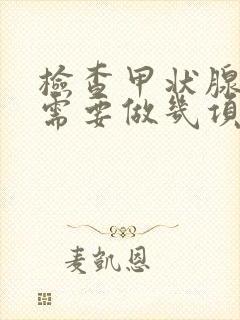 檢查甲状腺
需要做幾項
麦凱恩